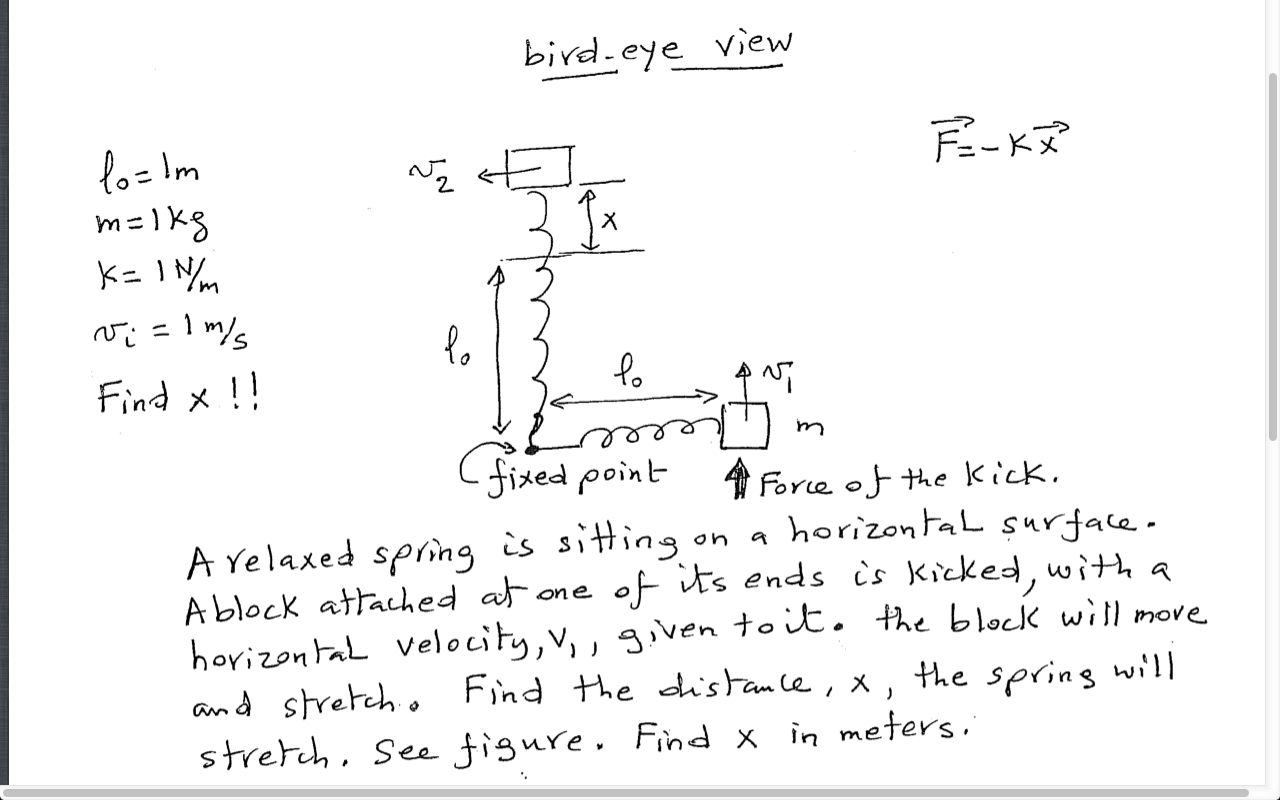 bird-eye view
l₀=1m
m=1kg
k=1N/m
vᵢ=1m/s
Find x !!
v₂
x
F⃗=-kx⃗
l₀
l₀
v₁
m
fixed point
Force of the kick.
A relaxed spring is sitting on a horizontal surface.
A block attached at one of its ends is kicked, with a
horizontal velocity, V₁, given to it. the block will move
and stretch. Find the distance, x, the spring will
stretch. See figure. Find x in meters.